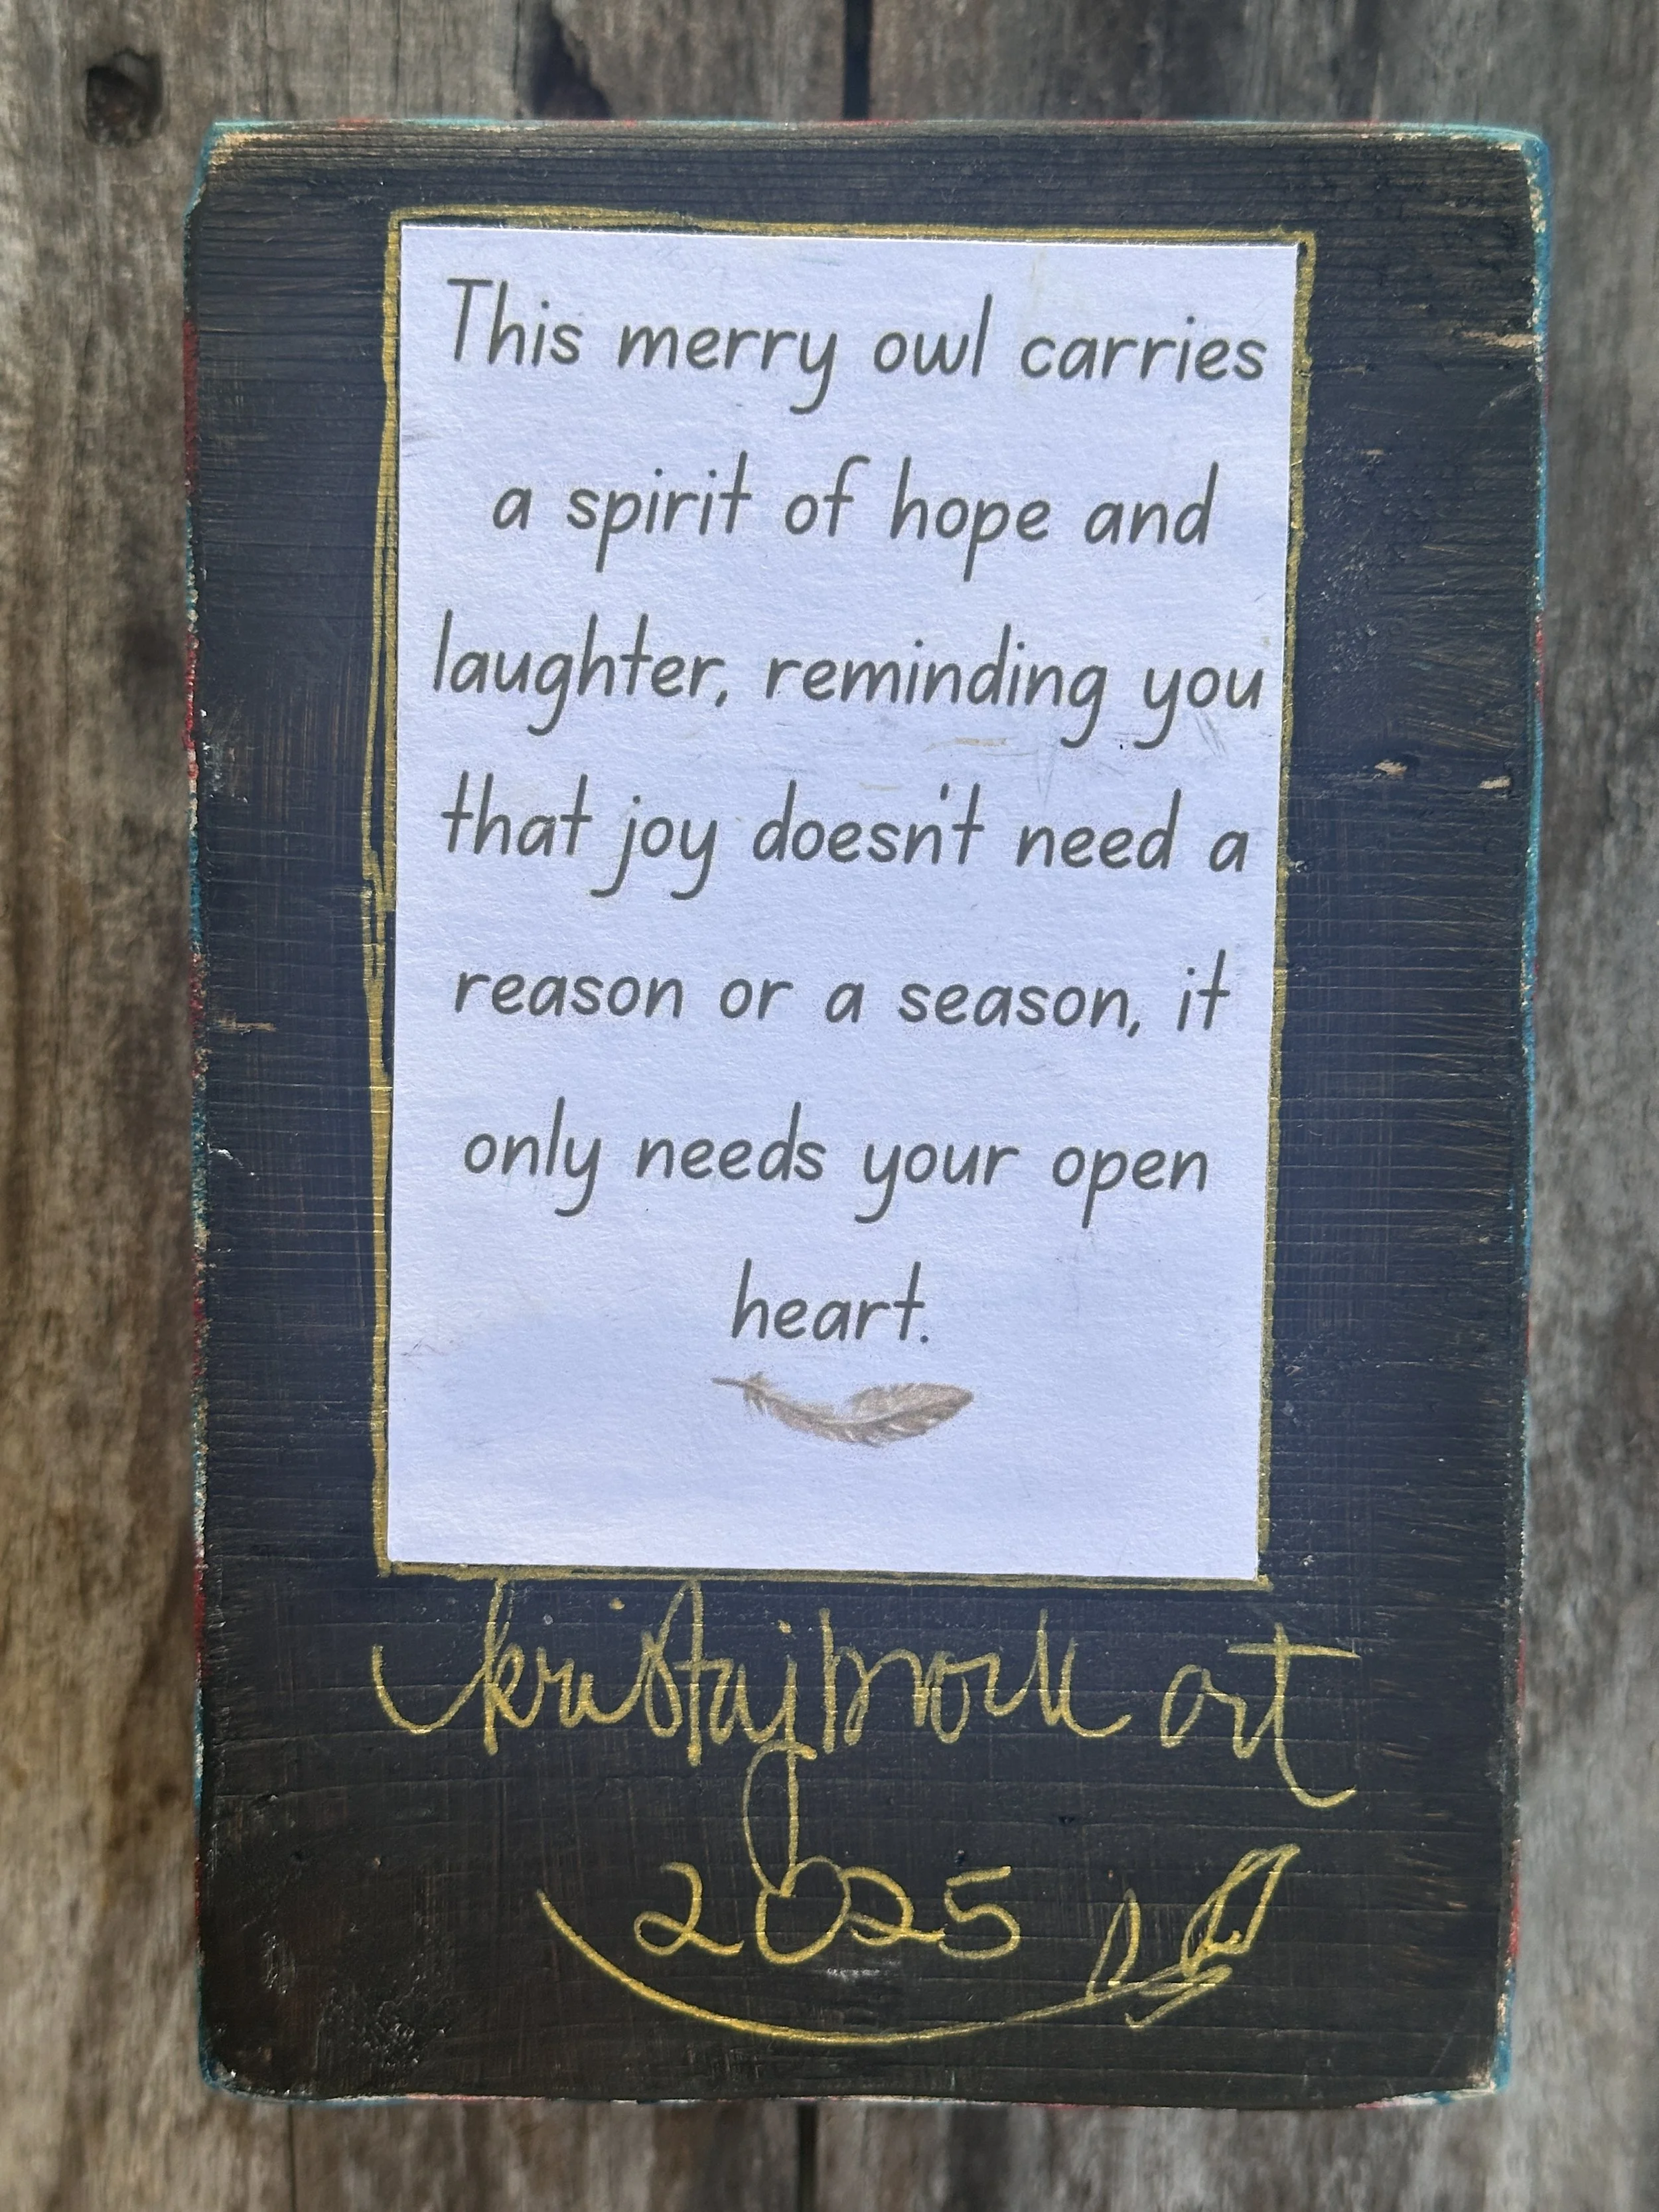 This merry owl carries
a spirit of hope and
laughter, reminding you
that joy doesn't need a
reason or a season, it
only needs your open
heart.
kristajbrock art
2025